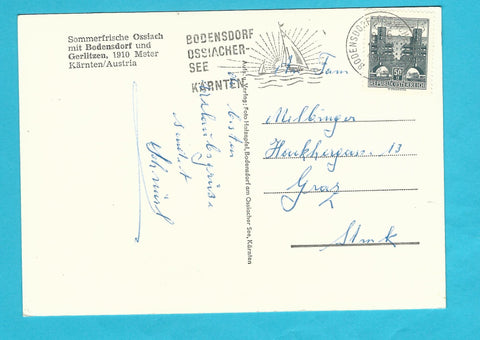 Sommerfrische Ossiach
mit Bodensdorf und
Gerlitzen, 1910 Meter
Kärnten/Austria
BODENSDORF
OSSIACHER-
SEE
KÄRNTEN
BODENSDORF
50
REPUBLIK ÖSTERREICH
Aufn. u. Verlag: Foto Holzapfel, Bodensdorf am Ossiacher See, Kärnten
besten
Urlaubsgrüsse
sendet
An Fam
Melbinger
13
Graz
Stmk